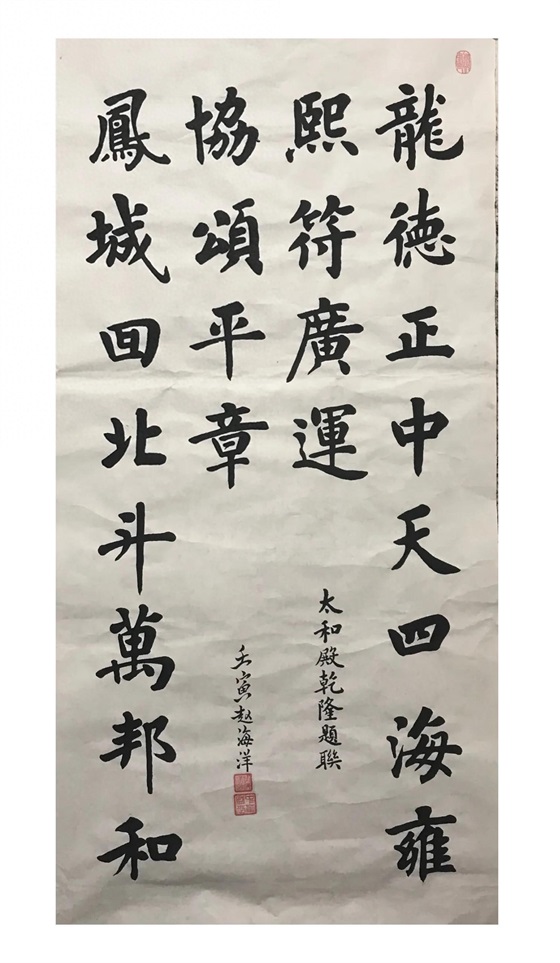 龍德正中天四海雍
熙符廣運
太和殿乾隆題聯
鳳城回北斗萬邦和
協頌平章
壬寅赵海洋